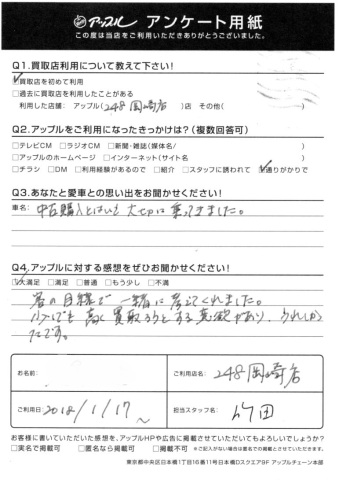 アップル アンケート用紙
この度は当店をご利用いただきありがとうございました。
Q1.買取店利用について教えて下さい!
☑買取店を初めて利用
□過去に買取店を利用したことがある
利用した店舗: アップル(248岡崎店)店 その他( )
Q2.アップルをご利用になったきっかけは?(複数回答可)
□テレビCM □ラジオCM □新聞・雑誌(媒体名/ )
□アップルのホームページ □インターネット(サイト名 )
□チラシ □DM □利用経験があるので □紹介 □スタッフに誘われて ☑通りがかりで
Q3.あなたと愛車との思い出をお聞かせください!
車名: 中古購入とはいえ大切に乗ってきました。
Q4.アップルに対する感想をぜひお聞かせください!
☑大満足 □満足 □普通 □もう少し □不満
客の目線で一緒に考えてくれました。
少しでも高く買取ろうとする意欲があり、うれしかっ
たです。
お名前:
ご利用店名: 248岡崎店
ご利用日 2018/1/17~
担当スタッフ名: 竹田
お客様に書いていただいた感想を、アップルHPや広告に掲載させていただいてもよろしいでしょうか?
□実名で掲載可 □匿名で掲載可 □掲載不可 ※ご記入がない場合は匿名での掲載とさせていただきます。
東京都中央区日本橋1丁目16番11号日本橋Dスクエア9F アップルチェーン本部